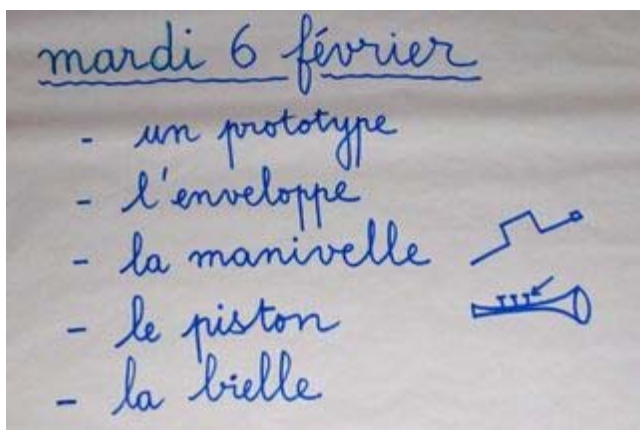 mardi 6 février
- un prototype
- l'enveloppe
- la manivelle
- le piston
- la bielle